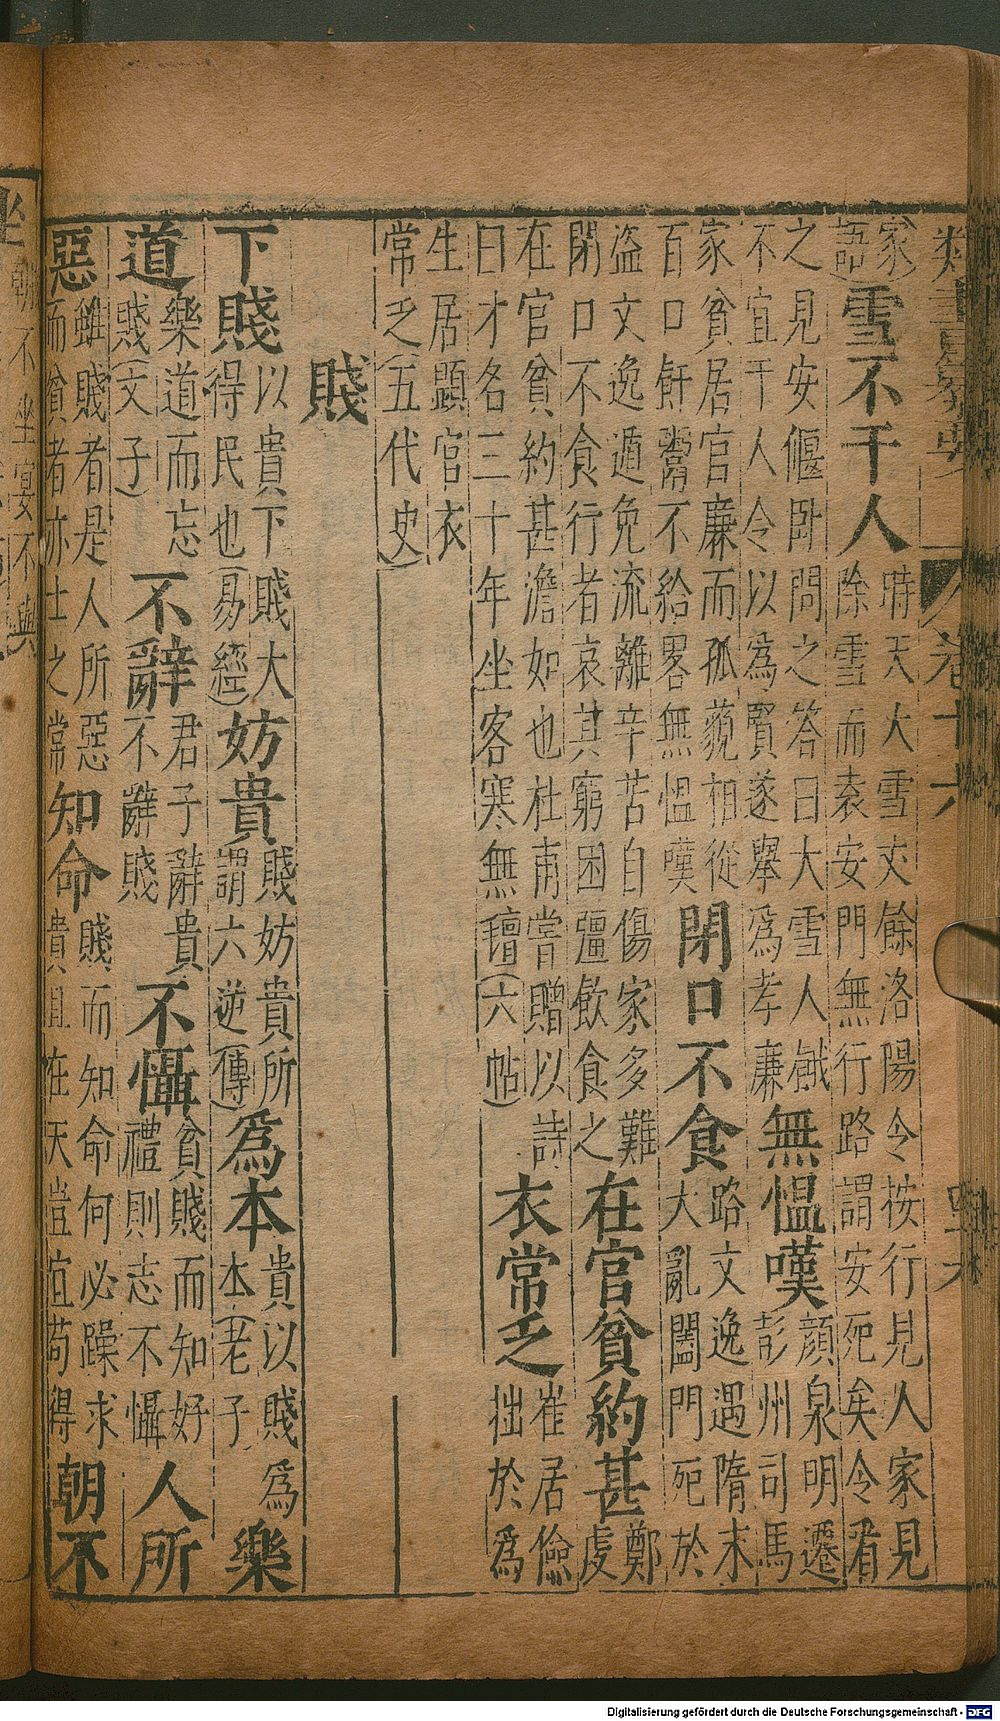 卷十六
家語雪不干人時天大雪丈餘洛陽令按行見人家見除雪而袁安門無行路謂安死矣令看
之見安偃卧問之答曰大雪人餓不宜干人令以爲賢遂舉爲孝廉無慍嘆顏泉明遷彭州司馬
家貧居官廉而孤藐相從百口飦鬻不給畧無慍嘆閉口不食路文逸遇隋末大亂闔門死於
盗文逸遁免流離辛苦自傷家多難閉口不食行者哀其窮困彊飲食之在官貧約甚鄭虔
在官貧約甚澹如也杜甫嘗贈以詩曰才名三十年坐客寒無氊(六帖)衣常乏崔居儉拙於爲
生居顯官衣常乏(五代史)
賤
下賤以貴下賤大得民也(易經)妨貴賤妨貴所謂六逆(傳)爲本貴以賤爲本(老子樂
道樂道而忘賤(文子)不辭君子辭貴不辭賤不懾貧賤而知好禮則志不懾人所
惡雖賤者是人所惡而貧者亦士之常知命賤而知命何必躁求貴且在天豈宜苟得朝不
坐朝不坐宴不與
Digitalisierung gefördert durch die Deutsche Forschungsgemeinschaft - DFG